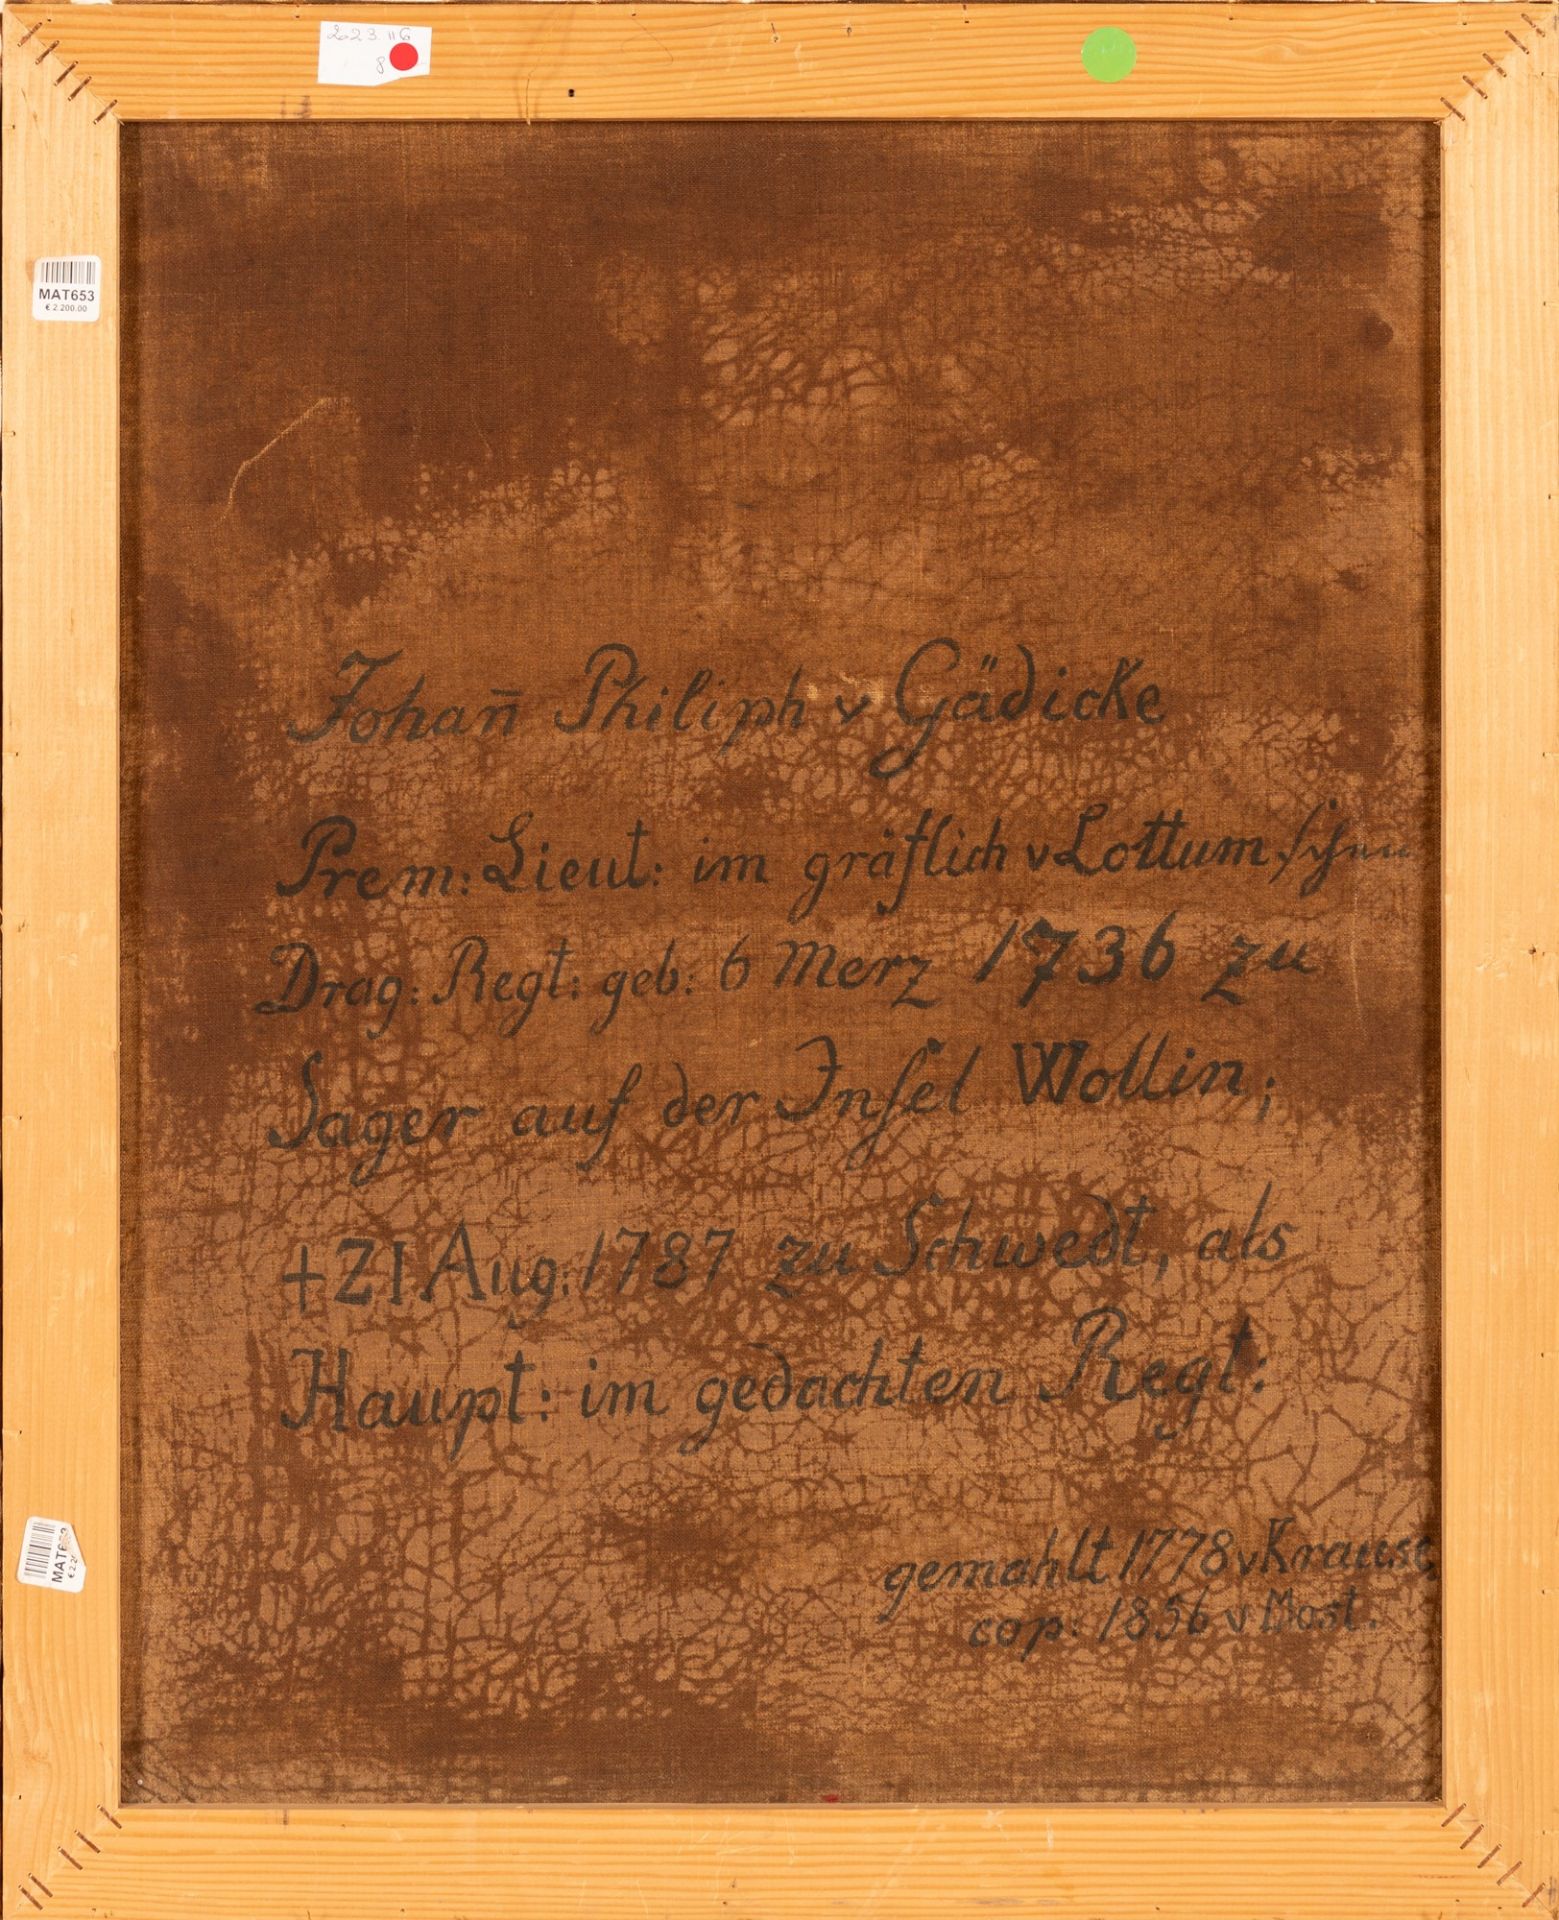 2023.116
8
MAT653
€ 2.200.00
Johan̄ Philiph v Gädicke
Prem: Lieut: im gräflich v Lottum, schen
Drag: Regt: geb: 6 Merz 1736 zu
Sager auf der Insel Wollin;
+21 Aug: 1787 zu Schwedt, als
Haupt: im gedachten Regt:
gemahlt 1778 v Krause,
cop: 1856 v Most.